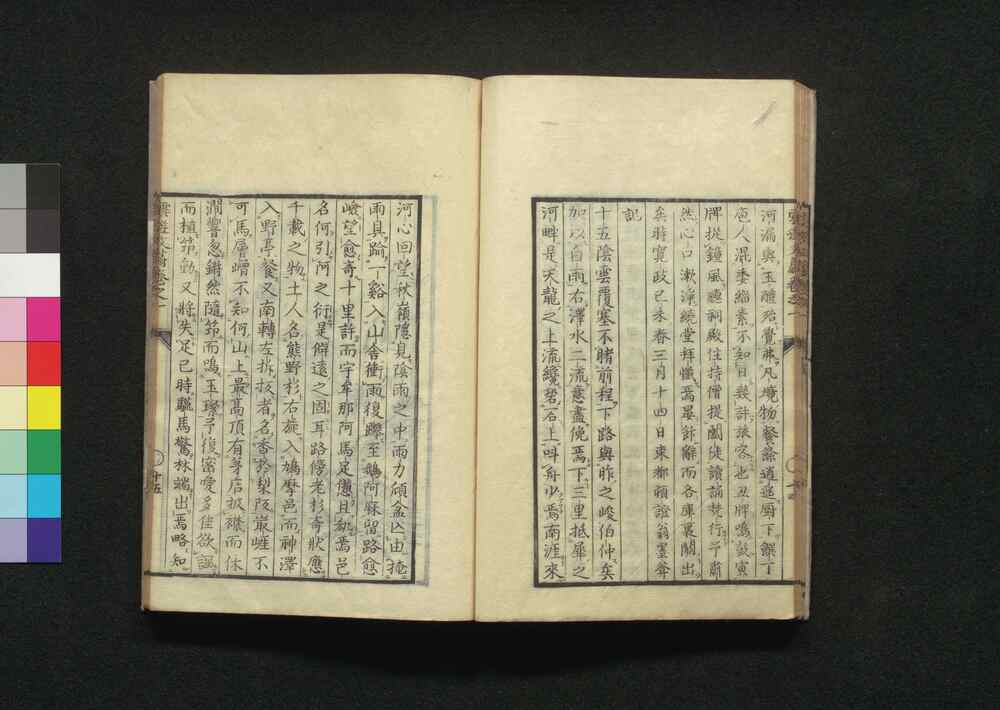 河漏與玉醴殆覺飛凡境物餐
庖人混委緇素不知日幾許旅客也丑牌鳴鼓寅
牌從鐘風聽祠殿住持僧提闔徒讀誦梵行予肅
然心口漱淨繞堂拜懺焉晏飰辭而各庫裏關出
矣時寬政己未春三月十四日東都
記
十五陰雲覆塞不睹前程下路與昨之峻伯仲矣
加以白雨右澤水二流意盡俛焉下三里抵犀之
河畔是天龍之上流纜碧石上叫舟少焉南涯來
河心回望秋嶺隱見陰雨之中雨力傾盆亡由
雨具踰一下谿入山舍衝雨復躒至鵝阿麻留路愈
峻望愈奇十里許而宇牟那阿馬足憊且紉焉邑
名何引阿之衍是僻遠之固耳路傍老杉奇狀應
千載之物土人名熊野杉右旋入鳩摩邑而神澤
入野亭餐又南轉左折拔者名香來梨阪巖崕不
可馬層嶒不知何山上最高頂有茅店扱礙而休
澗響忽鏘然隨筇而鳴玉璨予復當愛多佳欲諷
而植筇動又將失足已時驪馬驚林端出焉略知
十五